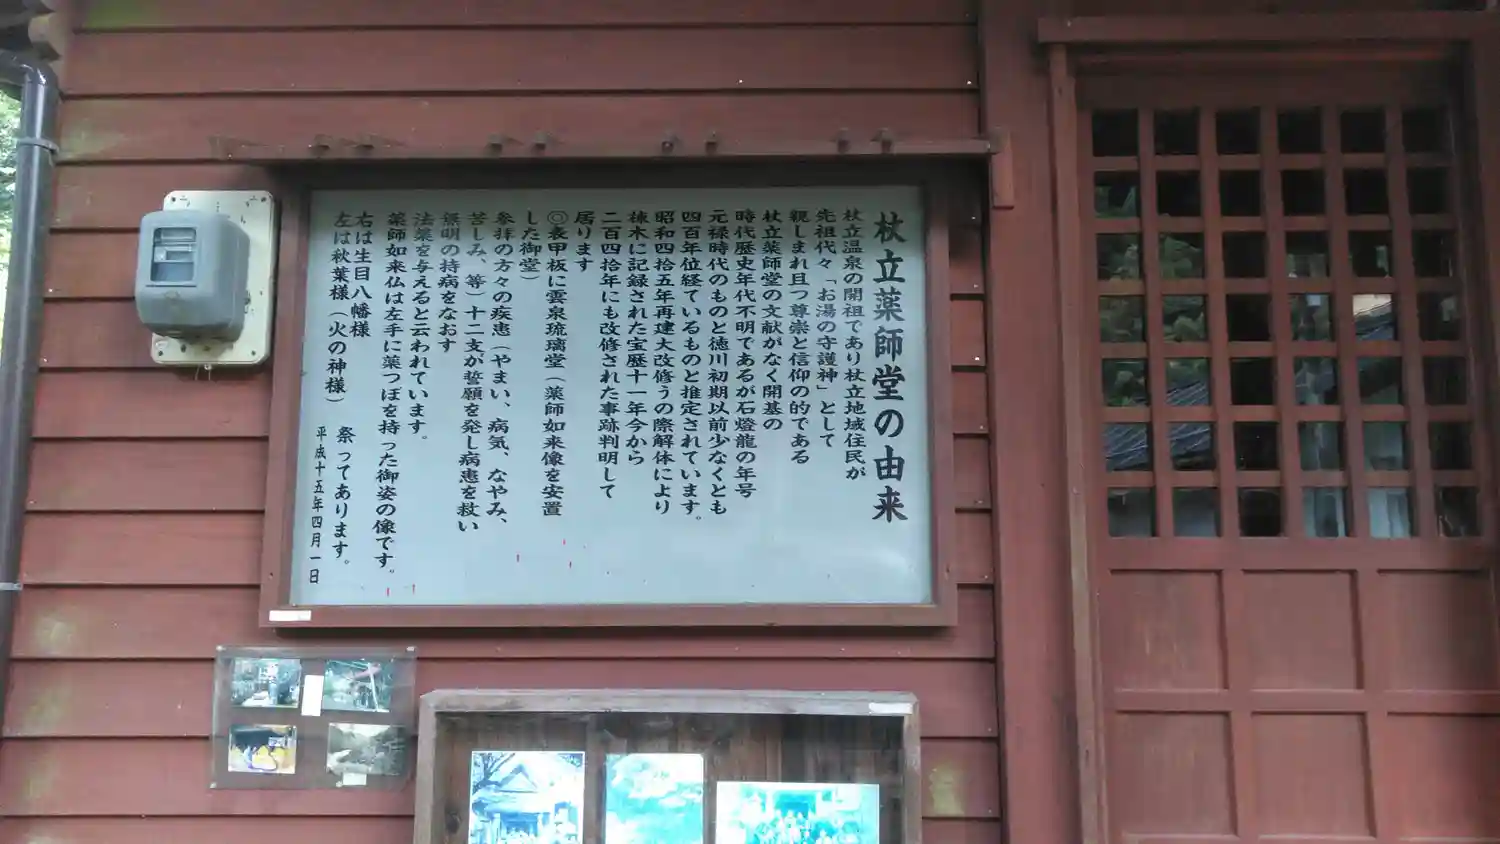 杖立薬師堂の由来
杖立温泉の開祖であり杖立地域住民が
先祖代々「お湯の守護神」として
親しまれ且つ尊崇と信仰の的である
杖立薬師堂の文献がなく開基の
時代歴史年代不明であるが石燈龍の年号
元禄時代のものと徳川初期以前少なくとも
四百年位経ているものと推定されています。
昭和四拾五年再建大改修うの際解体により
棟木に記録された宝歴十一年今から
二百四拾年にも改修された事跡判明して
居ります
◎表甲板に雲泉琉璃堂(薬師如来像を安置
した御堂)
参拝の方々の疾患(やまい、病気、なやみ、
苦しみ、等)十二支が誓願を発し病患を救い
無明の持病をなおす
法薬を与えると云われています。
薬師如来仏は左手に薬つぼを持った御姿の像です。
右は生目八幡様
左は秋葉様(火の神様) 祭ってあります。
平成十五年四月一日